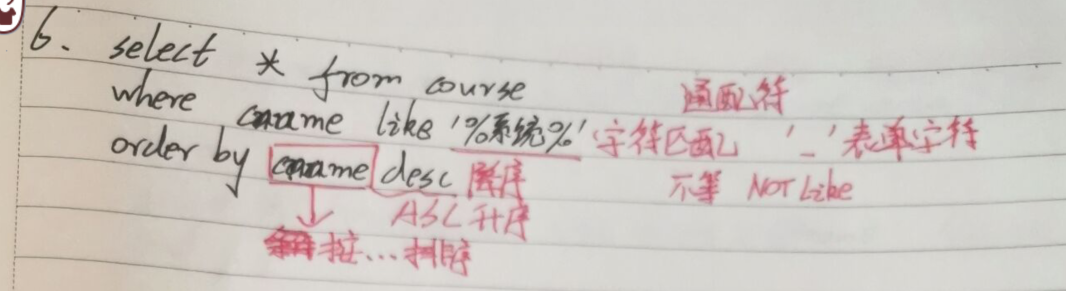 6. select * from course
通配符
where cname like '%系统%' 字符匹配 '_' 表单字符
order by cname desc 降序
不等 NOT Like
ASC 升序
按...排序